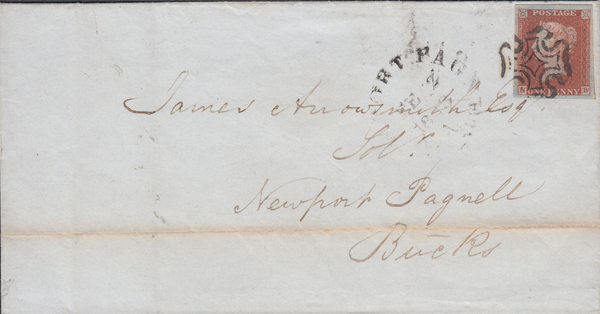 POSTAGE
ONE PENNY
RT PAG
James Arrowsmith Esq
Solr
Newport Pagnell
Bucks